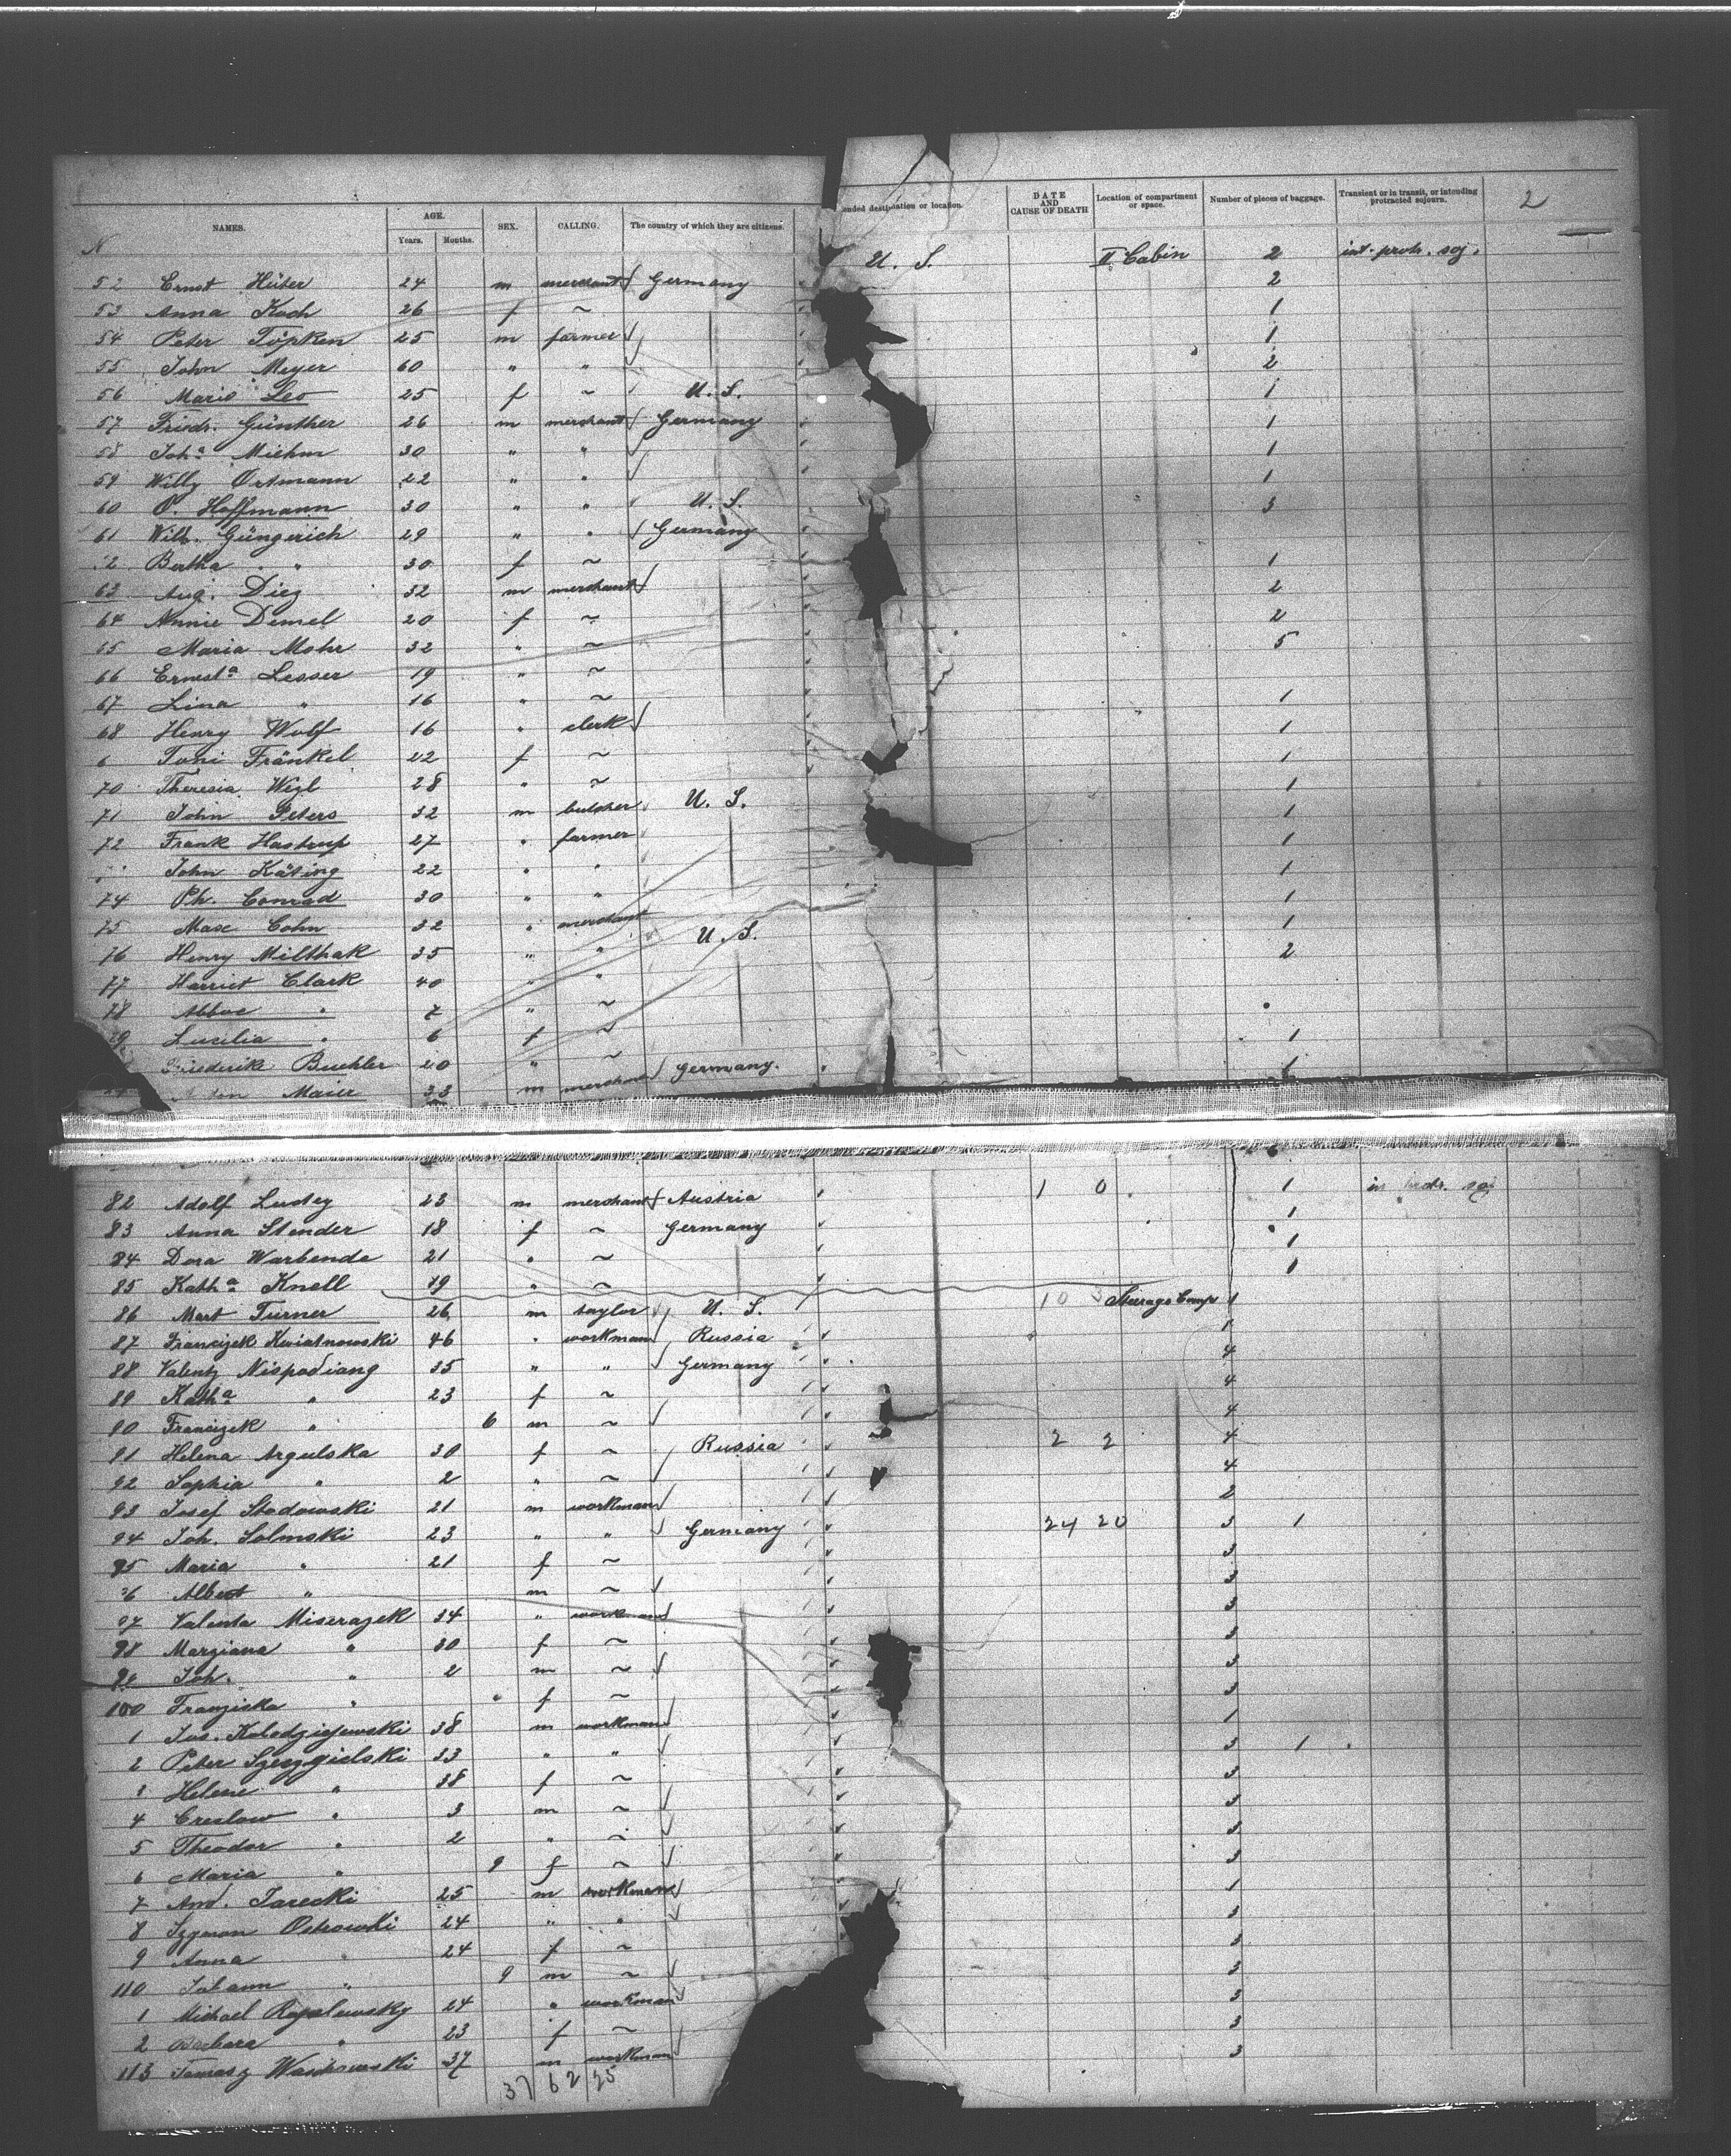 2
NAMES. AGE. Years. Months. SEX. CALLING. The country of which they are citizens. ended destination or location. DATE AND CAUSE OF DEATH Location of compartment or space. Number of pieces of baggage. Transient or in transit, or intending protracted sojourn.
N U. S. II Cabin 2 int. protr. soj.
52 Ernst Hüter 24 m merchant Germany 2
53 Anna Koch 26 f ~ 1
54 Peter Töpken 25 m farmer 1
55 John Meyer 60 " " 2
56 Marie Leo 25 f ~ U. S. 1
57 Friedr. Günther 26 m merchant Germany 1
58 Joh.a Miehm 30 " " 1
59 Willy Ortmann 22 " " 1
60 O. Hoffmann 30 " " U. S. 3
61 Wilh. Güngerich 29 " " Germany
2 Bertha " 30 f ~ 1
63 Aug. Diez 52 m merchant 2
64 Annie Demel 20 f ~ 2
65 Maria Mohr 32 " ~ 5
66 Ernest.a Lesser 19 " ~
67 Lina " 16 " ~ 1
68 Henry Wolf 16 " clerk 1
6 Toni Fränkel 22 f ~ 1
70 Theresia Wegl 28 " ~ 1
71 John Peters 32 m butcher U. S. 1
72 Frank Hastrup 27 " farmer 1
John Käting 22 " " 1
74 Ph. Conrad 30 " " 1
75 Max Cohn 32 " merchant 1
76 Henry Milthak 35 " " U. S. 2
77 Harriet Clark 40 " "
78 " 7 " ~
79 Lucilia " 6 f ~ 1
Friederike Buehler 20 " ~ Germany. 1
Maier 33 m merchant
82 Adolf Ludey 23 m merchant Austria 1 0 1 protr. soj
83 Anna Stender 18 f ~ Germany 1
84 Dora Warbende 21 " ~ 1
85 Kath.a Knell 19 " ~ 1
86 Mart Turner 26 m taylor U. S. 10 Steerage Comp 1
87 Francizek Kwiatnowski 46 " workman Russia 1
88 Valenty Nispodziang 35 " " Germany 4
89 Kath.a " 23 f ~ 4
90 Francizek " 6 m ~ 4
91 Helena Argulska 30 f ~ Russia 2 2 4
92 Sophia " 2 " ~ 4
93 Josef Stodowski 21 m workman 2
94 Joh. Solmski 23 " " Germany 24 20 3 1
95 Maria " 21 f ~ 3
96 Albert " m ~ 3
97 Valenta Miserazek 34 " workman 3
98 Marziana " 30 f ~ 3
99 Joh. " 2 m ~ 3
100 Franziska " " f ~ 3
1 Jos. Kolodziejewski 38 m workman 1
2 Peter Szczygielski 33 " " 3 1
3 Helene " 38 f ~ 3
4 Creslaw " 3 m ~ 3
5 Theodor " 2 " ~ 3
6 Maria " 9 f ~ 3
7 And. Jarecki 25 m workman 1
8 Szymon Ostrowski 24 " " 3
9 Anna " 24 f ~ 3
110 Johann " 9 m ~ 3
1 Michael Rogalewsky 24 " workman 3
2 Barbara " 23 f ~ 3
113 Tomasz 37 m workman 3
37 62 25